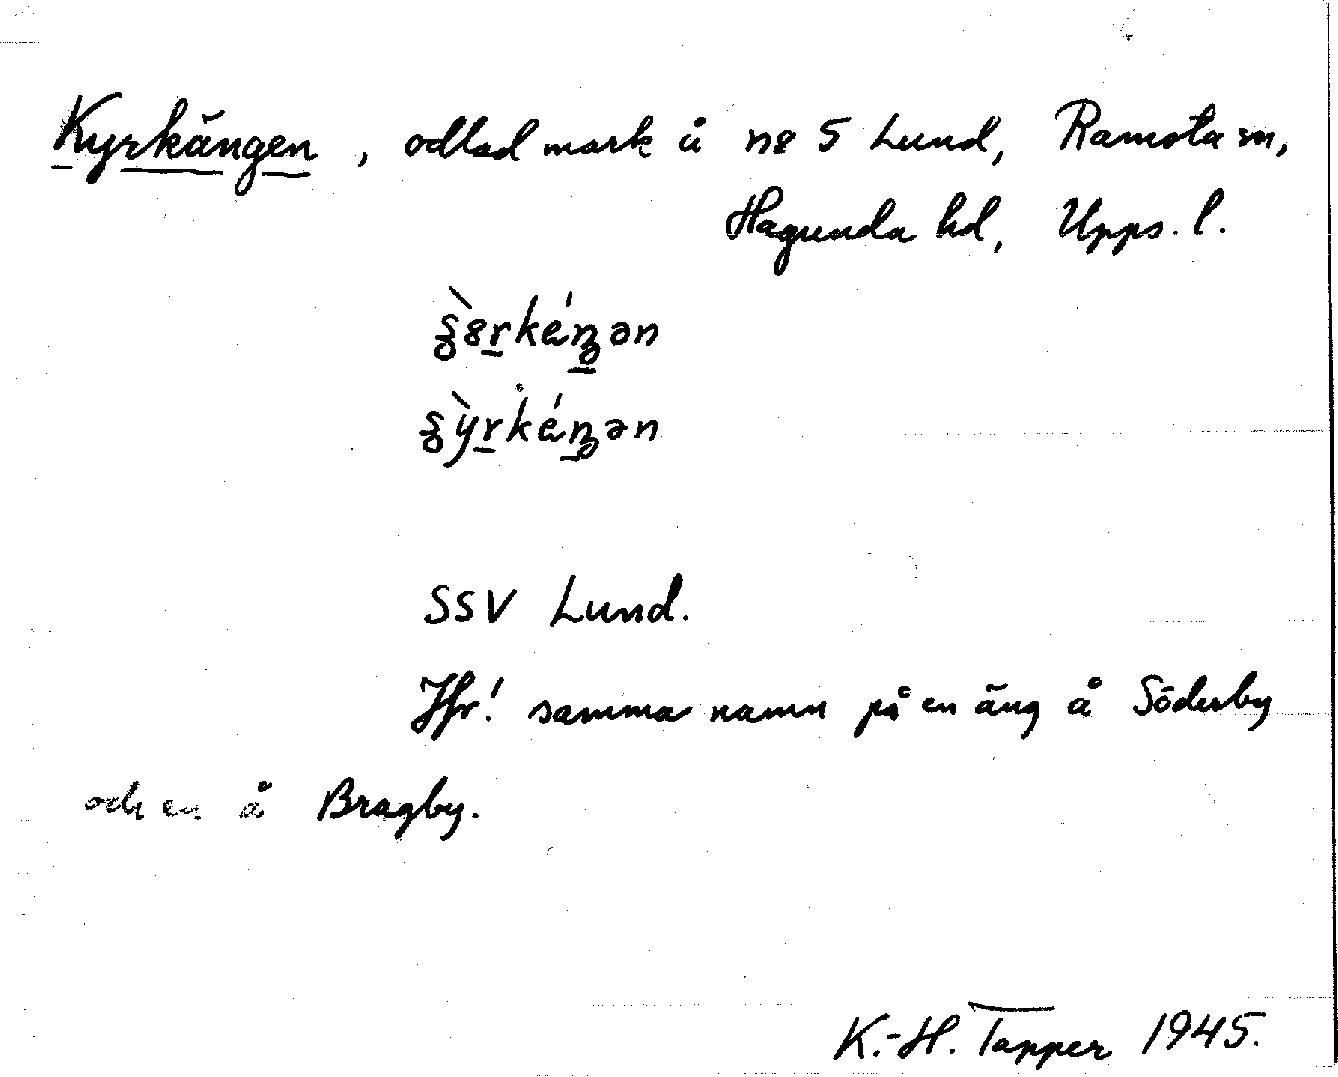 Kyrkängen, odlad mark å nr 5 Lund, Ramsta sn,
Hagunda hd, Upps. l.
SSV Lund.
Jfr! samma namn på en äng å Söderby
och en å Bragby.
K.-H. Tapper 1945.